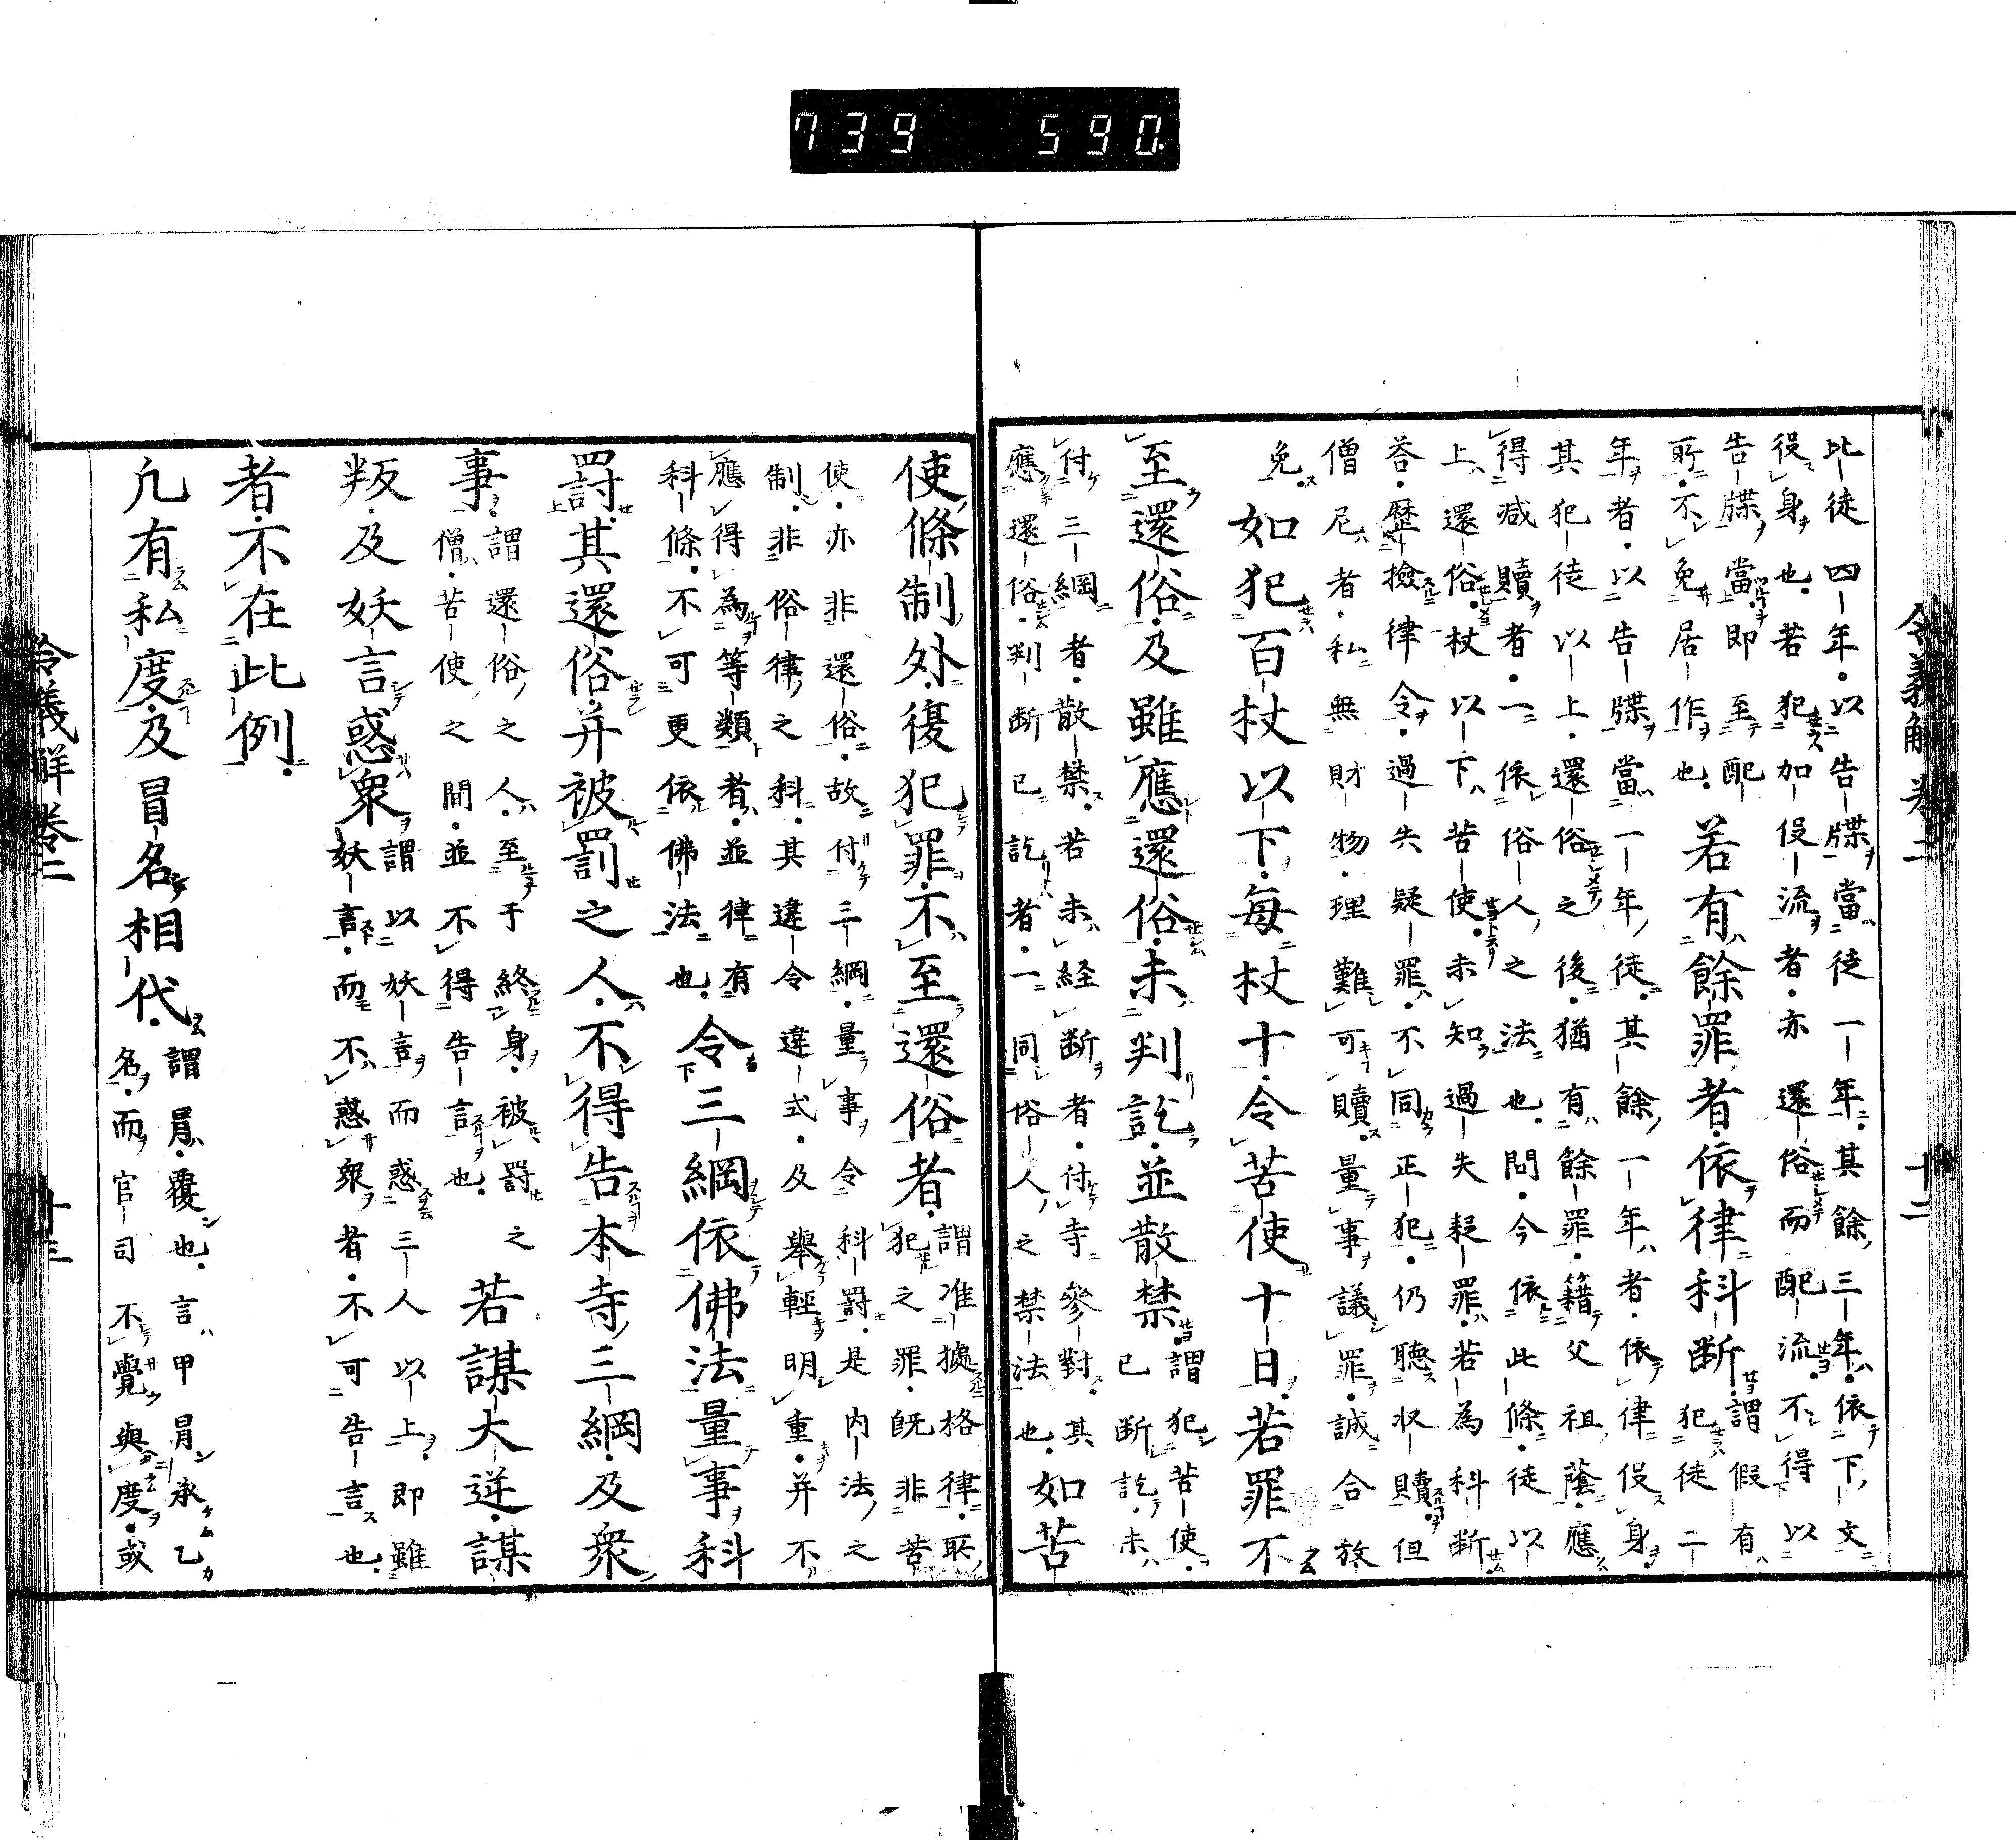 739 590
令義解卷二 十二
比徒四年以告牒當徒一年其餘三年依下文
役身也若犯加役流者亦還俗而配流不得以
告牒當即至配
所不免居作也
若有餘罪者依律科断
謂假有
犯徒二
年者以告牒當一年徒其餘一年者依律役身
其犯徒以上還俗之後猶有餘罪籍父祖蔭應
得减贖者一依俗人之法也問今依此條徒以
上還俗杖以下苦使未知過失疑罪若為科断
荅歷撿律令過失疑罪不同正犯仍聽收贖但
僧尼者私無財物理難可贖量事議罪誠合放
免
如犯百杖以下每杖十令苦使十日若罪不
至還俗及雖應還俗未判訖並散禁
謂犯苦使
已断訖未
付三綱者散禁若未経断者付寺參對其
應還俗判断已訖者一同俗人之禁法也
如苦
使條制外復犯罪不至還俗者
謂准據格律
犯之罪既非苦
使亦非還俗故付三綱量事令科罸是内法之
制非俗律之科其違令違式及舉輕明重并不
應得為等類者並律有
科條不可更依佛法也
令三綱依佛法量事科
罸其還俗并被罰之人不得告本寺三綱及衆
事
謂還俗之人至于終身被罸之
僧苦使之間並不得告言也
若謀大逆謀
叛及妖言惑衆
謂以妖言而惑三人以上即雖
妖言而不惑衆者不可告言也
者不在此例
凢有私度及冒名相代
謂覆也言甲承乙
名而官司不覺與度或
令義解卷二 十三